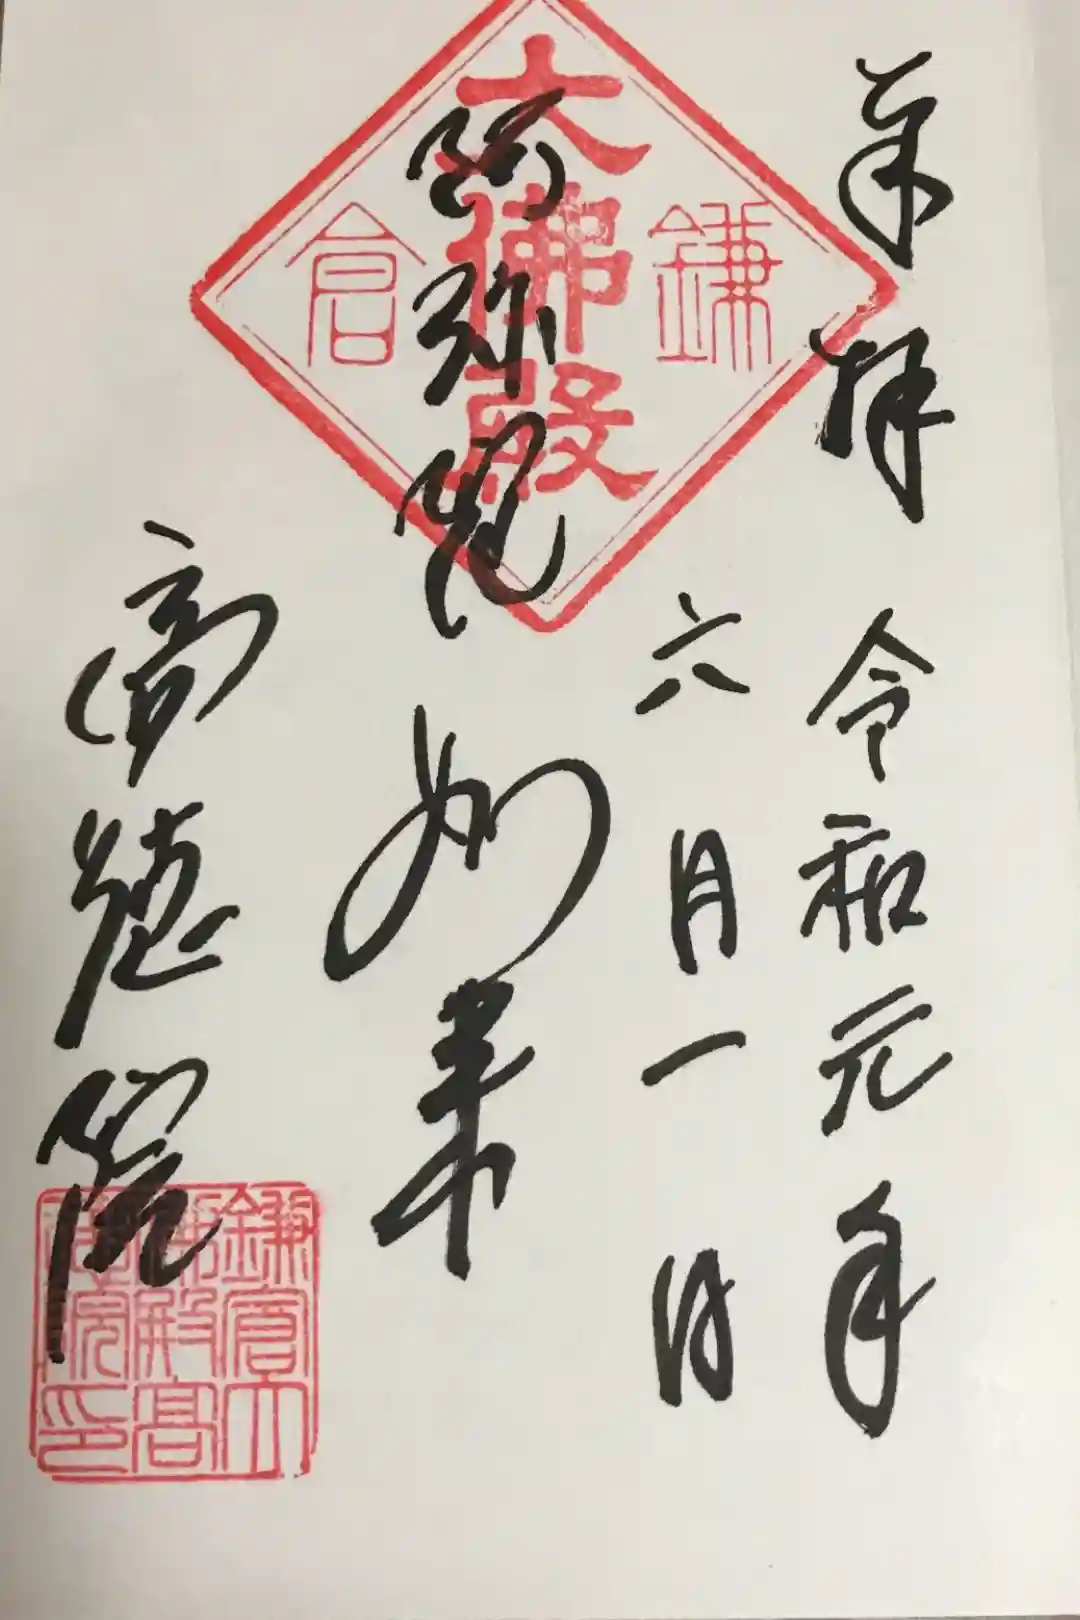 奉拝 令和元年
六月一日
鎌倉
大佛殿
阿弥陀如来
高徳院
鎌倉大
佛殿高
徳院印